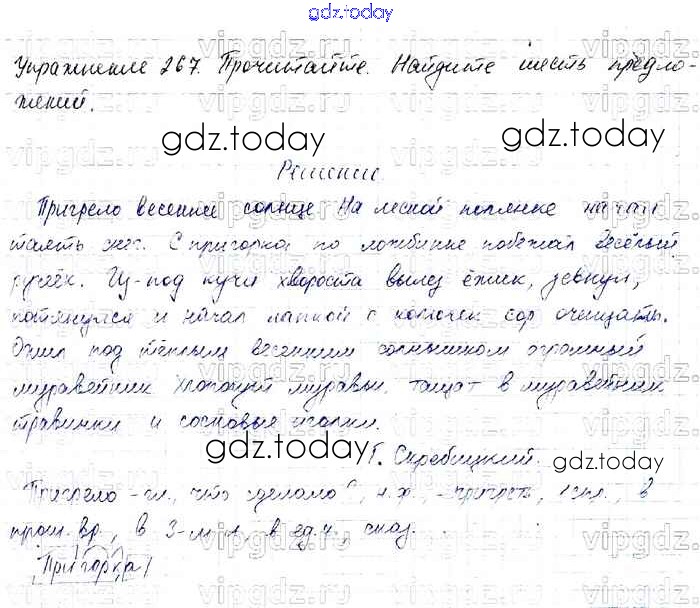 gdz.today
Упражнение 267. Прочитайте. Найдите шесть предло-
жений.
gdz.today
gdz.today
Решение.
Пригрело весеннее солнце. На лесной полянке начал
таять снег. С пригорка по ложбинке побежал весёлый
ручеёк. Из-под кучи хвороста вылез ёжик, зевнул,
потянулся и начал лапкой с колючек сор очищать.
Ожил под тёплым весенним солнышком огромный
муравейник. Хлопочут муравьи. тащат в муравейник
травинки и сосновые иголки.
gdz.today
gdz.today
Г. Скребицкий.
Пригрело - гл., что сделало?, н.ф. - пригреть, 1 спр., в
прош. вр., в 3-м л., в ед.ч., сказ.
gdz.today
gdz.today
Пригорка